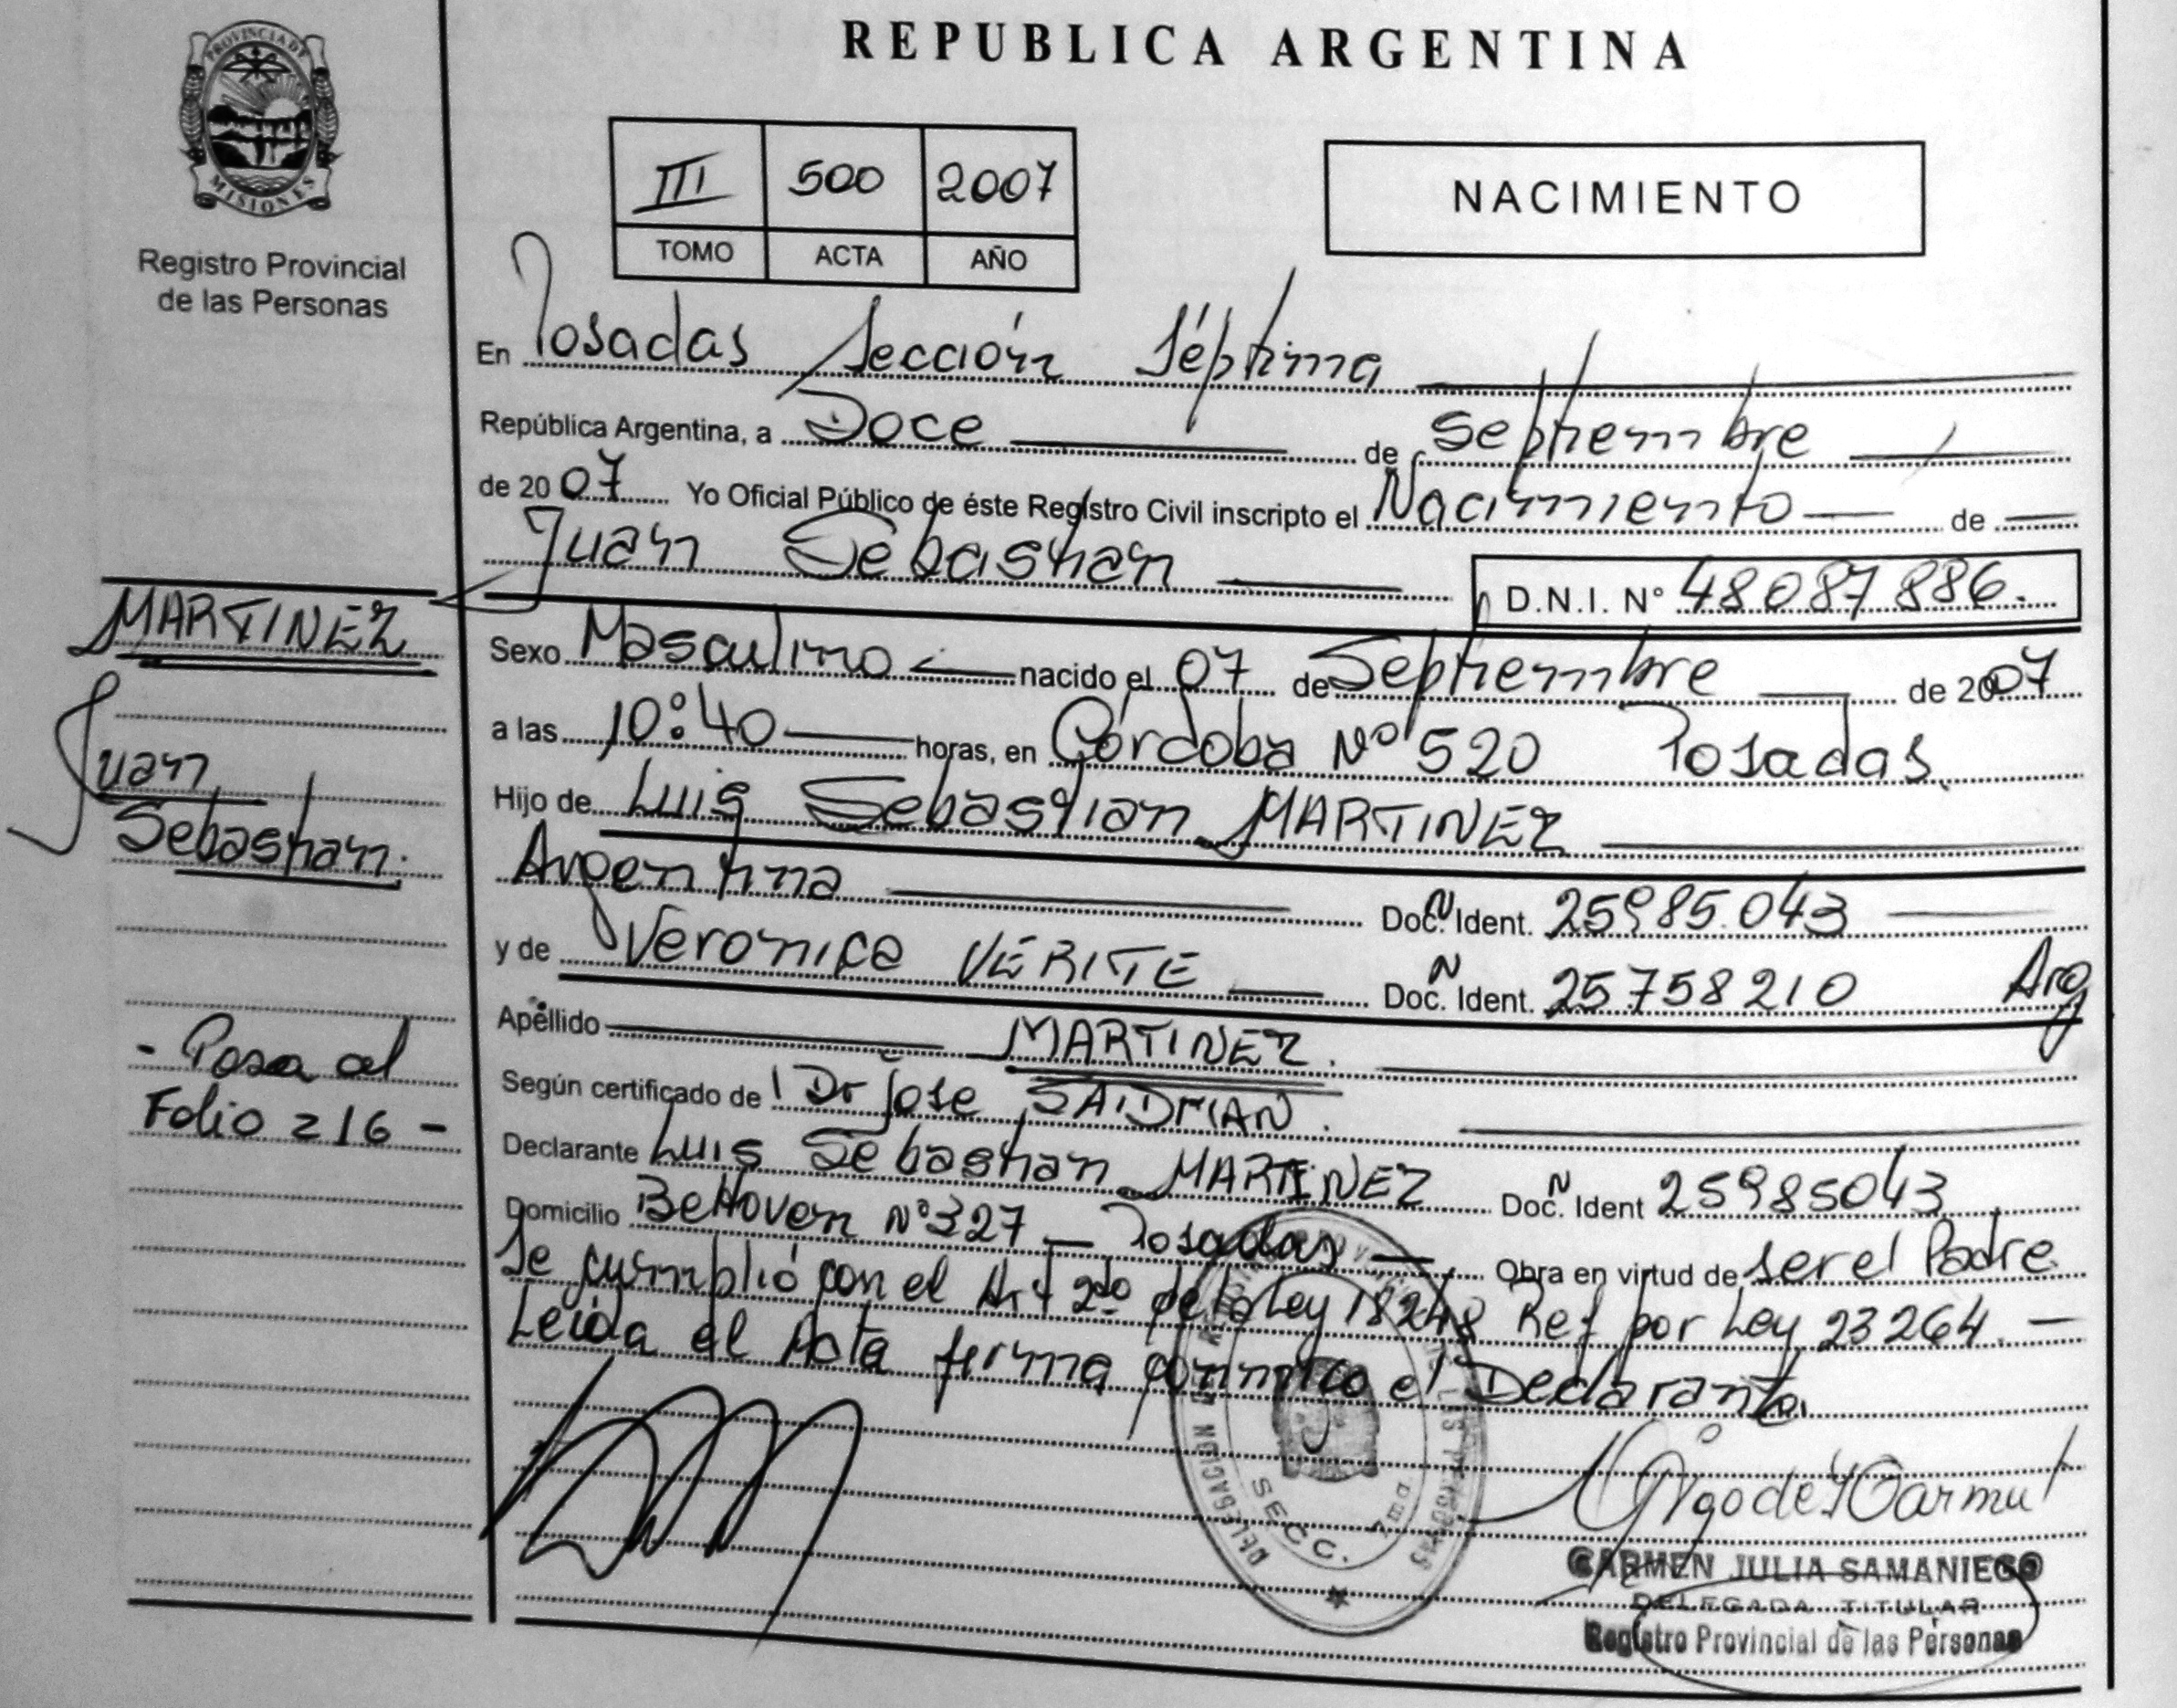 REPUBLICA ARGENTINA
PROVINCIA DE
MISIONES
Registro Provincial
de las Personas
III 500 2007
TOMO ACTA AÑO
NACIMIENTO
En Posadas Sección Séptima
República Argentina, a Doce de Septiembre
de 2007 Yo Oficial Público de éste Registro Civil inscripto el Nacimiento de
Juan Sebastian D.N.I. Nº 48087886.
MARTINEZ
Juan
Sebastian.
- Pasa al
Folio 216 -
Sexo Masculino nacido el 07 de Septiembre de 2007
a las 10:40 horas, en Córdoba Nº 520 Posadas
Hijo de Luis Sebastian MARTINEZ
Argentina Doc. N Ident. 25985.043
y de Veronica VERITE Doc. N Ident. 25758210 Arg
Apellido MARTINEZ.
Según certificado de Dr Jose SAIDMAN.
Declarante Luis Sebastian MARTINEZ Doc. N Ident 25985043
Domicilio Bethoven Nº 327 - Posadas - Obra en virtud de ser el Padre
Se cumplió con el Art 2do de la Ley 18248 Ref por Ley 23264. -
Leida el Acta firma conmigo el Declarante.
DELEGACION
SECC. 7ma
CARMEN JULIA SAMANIEGO
DELEGADA TITULAR
Registro Provincial de las Personas